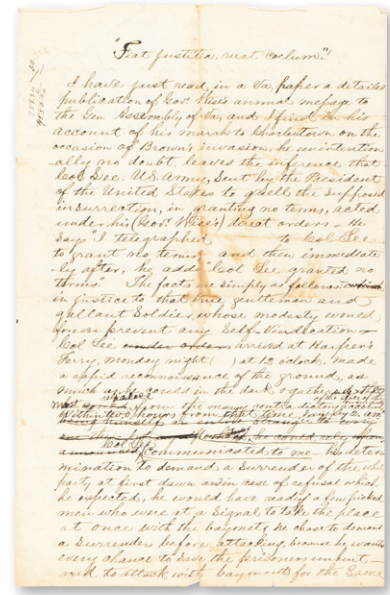 "Fiat justitia, ruat coelum"!
I have just read, in a Va. paper a detailed
publication of Gov. Wise's annual message to
the Gen Assembly of Va, and I find in his
account of his march to Charlestown on the
occasion of Brown's invasion, he unintention
-ally no doubt, leaves the inference that
Col Lee U.S. Army, Sent by the President
of the United States to quell the Supposed
insurrection, in granting no terms, acted
under his (Gov. Wise's) direct orders — He
Says "I telegraphed to Col Lee
to grant no terms" and then immediate
-ly after, he adds "Col Lee granted no
terms" The facts are simply as follows
in justice to that true gentleman and
gallant Soldier, whose modesty would
forever prevent any Self-Vindication —
Col Lee under orders arrived at Harper's
Ferry, Monday night ( ) at 12 oclock. Made
a rapid reconnoisance of the ground, as
much as he could in the dark & gathered
from the
within two hours from that time,
being himself an entire stranger to every
he could rely upon
announced Col Lee communicated to me his deter
mination to demand a Surrender of the whole
party at first dawn and in case of refusal which
he expected, he would have ready a few picked
men who were at a Signal to take the place
at once with the bayonet, he chose to demand
a Surrender before attacking, because he wanted
every chance to Save the prisoners unhurt,
and to attack with bayonets for the Same